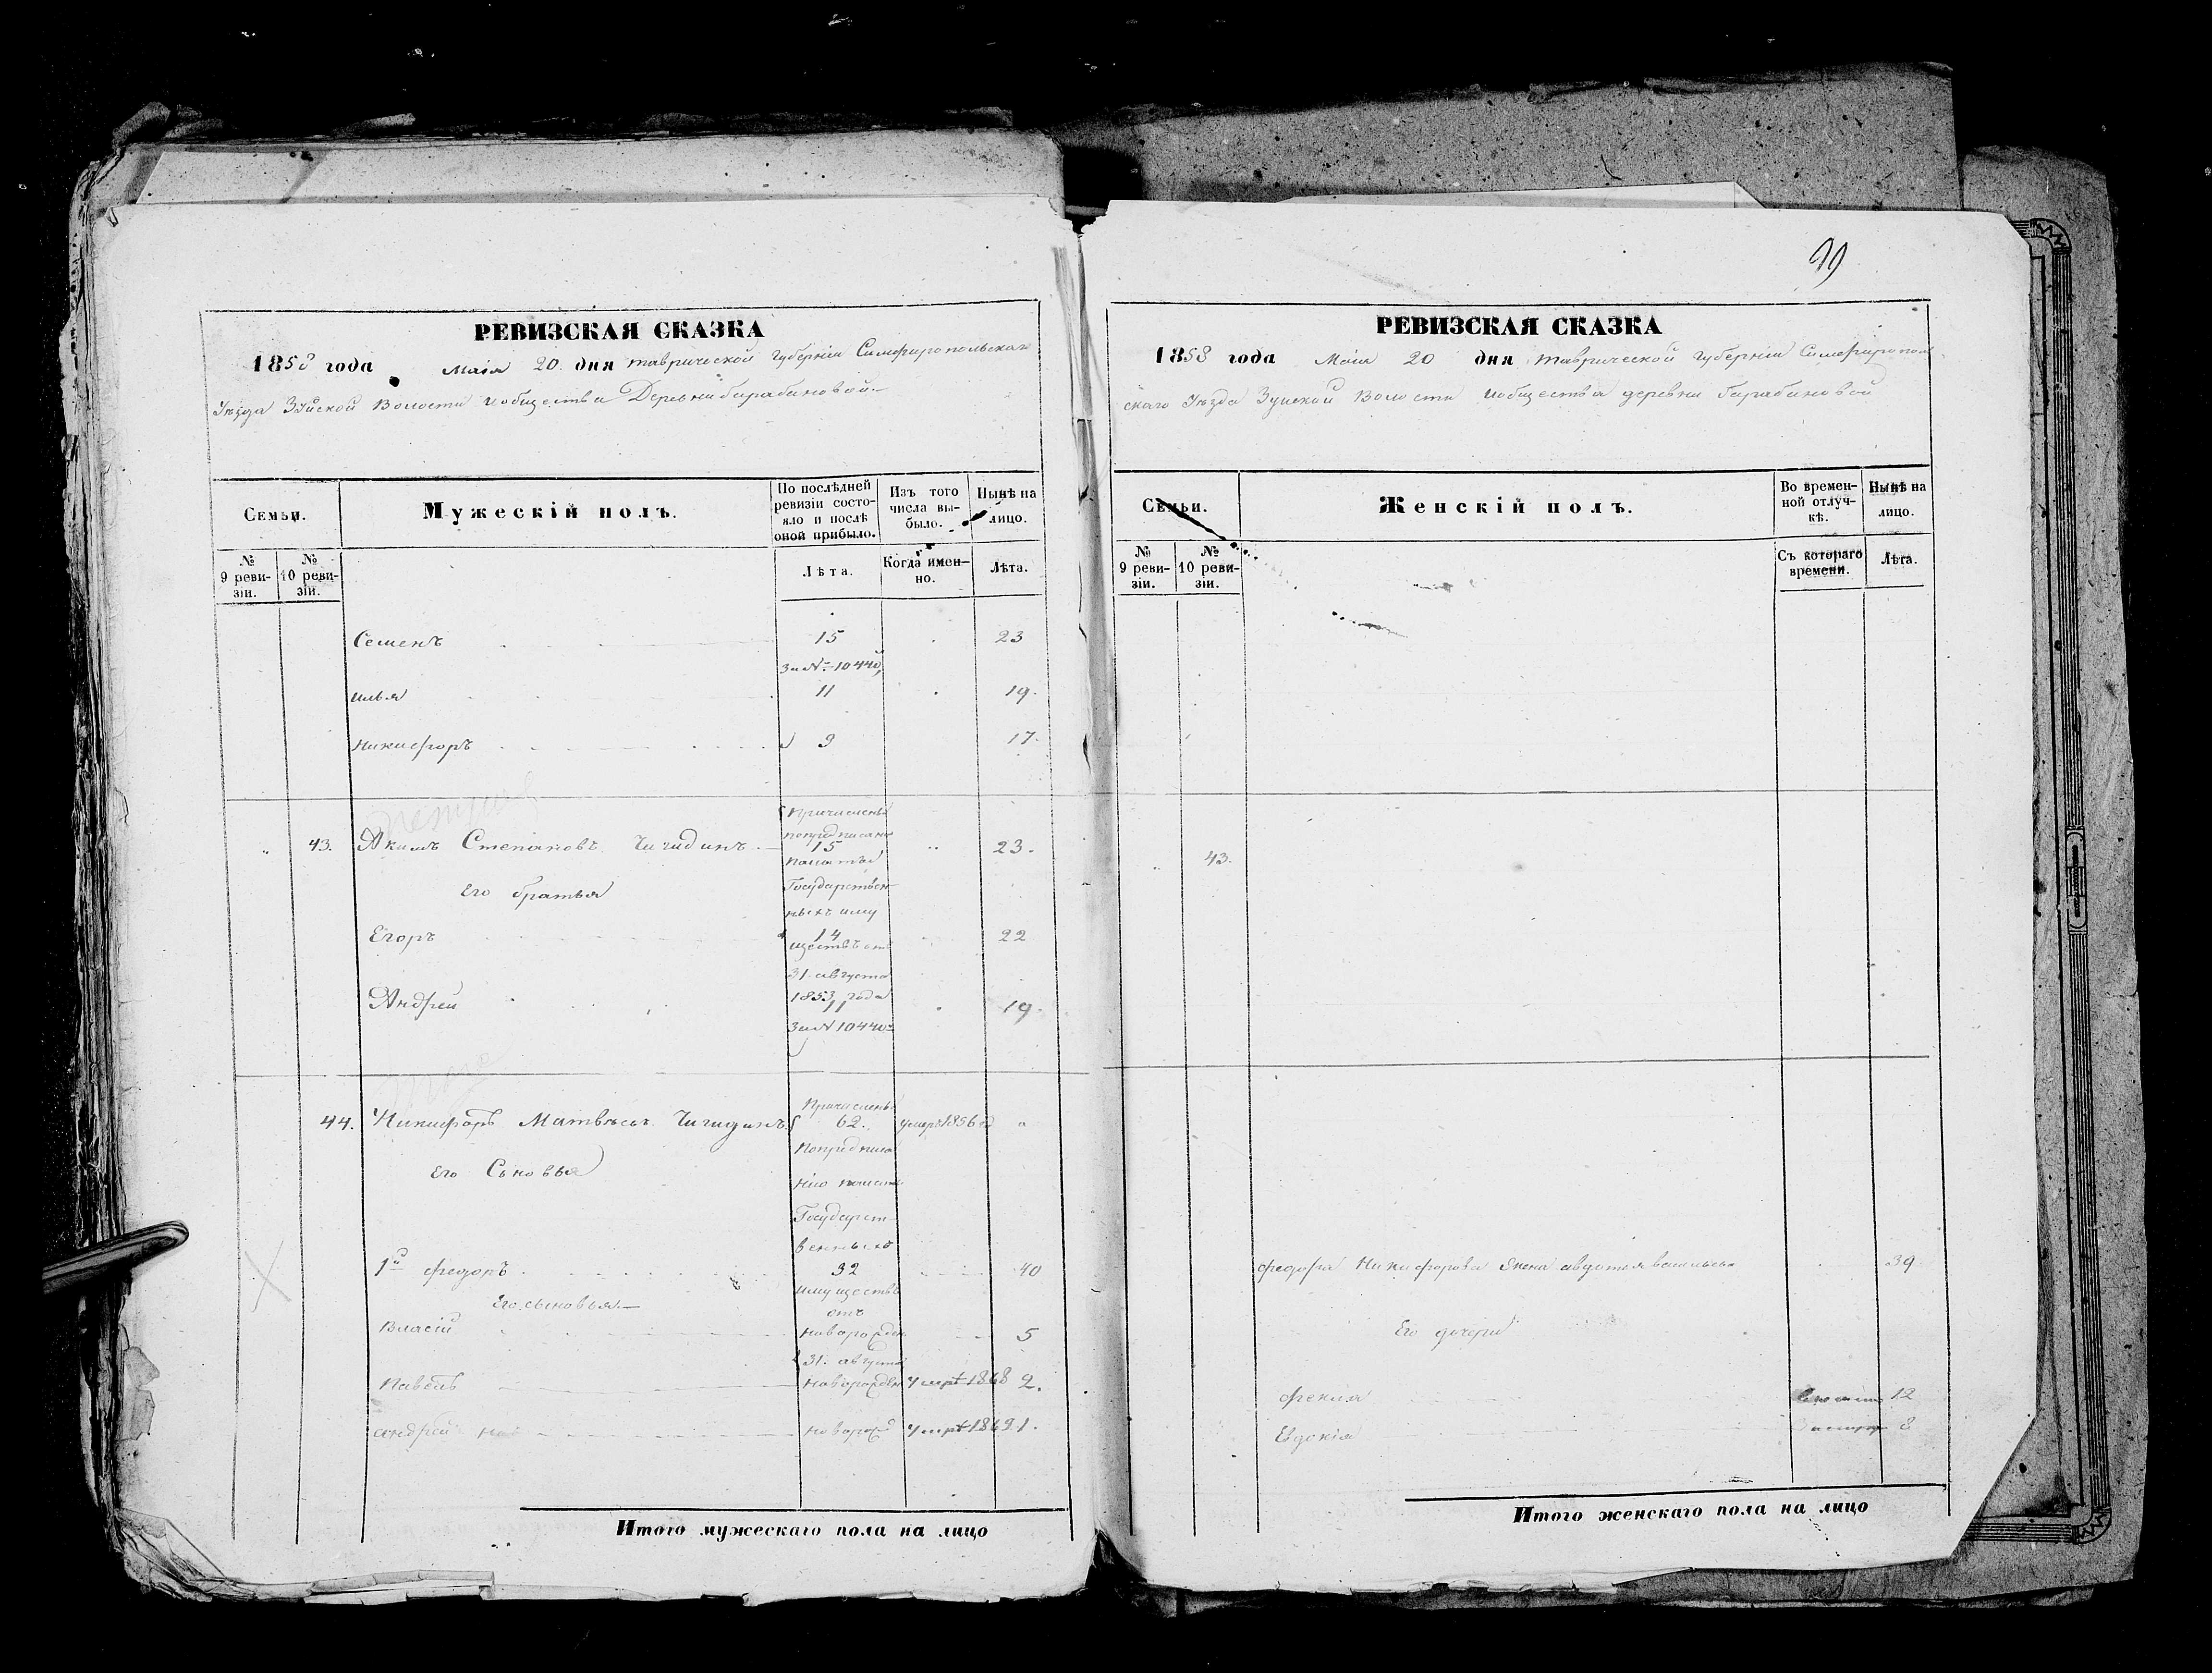 РЕВИЗСКАЯ СКАЗКА
1858 года Маія 20 дня таврической губерніи Симферопольскаго
Уѣзда Зуйской Волости и общества Деревни барабановой
Семьи.
Мужескій полъ.
По послѣдней ревизіи состояло и послѣ оной прибыло.
Изъ того числа выбыло.
Нынѣ на лицо.
№ 9 ревизіи.
№ 10 ревизіи.
Лѣта.
Когда именно.
Лѣта.
Семенъ 15 23
За № 10440
илья 11 19.
Никифоръ 9 17.
Причислены
43. Акимъ Степановъ Чигидинъ 15 23.
палаты
Его братья Государствен-
ныхъ иму
Егоръ 14 22
ществъ отъ
31. августа
Андрей 1853 года 11 19.
За № 10440
Причислены
44. Никифоръ Матвѣевъ Чигидинъ 62. умеръ 1856
Его Сыновья
Государст-
венныхъ
1й федоръ 32 40
имуществъ
Его сыновья отъ
Власій новорожден 5
31. августа
Павелъ новорожден 2.
андрей новорожд 1.
Итого мужескаго пола на лицо
99
РЕВИЗСКАЯ СКАЗКА
1858 года Маія 20 дня таврической губерніи Симферополь-
скаго Уѣзда Зуйской Волости и общества деревни барабановой
Семьи.
Женскій полъ.
Во временной отлучкѣ.
Нынѣ на лицо.
№ 9 ревизіи.
№ 10 ревизіи.
Съ котораго времени.
Лѣта.
43.
федора Никифорова жена авдотья васильева 39
Его дочери
фекла 12
Евдокія 8
Итого женскаго пола на лицо